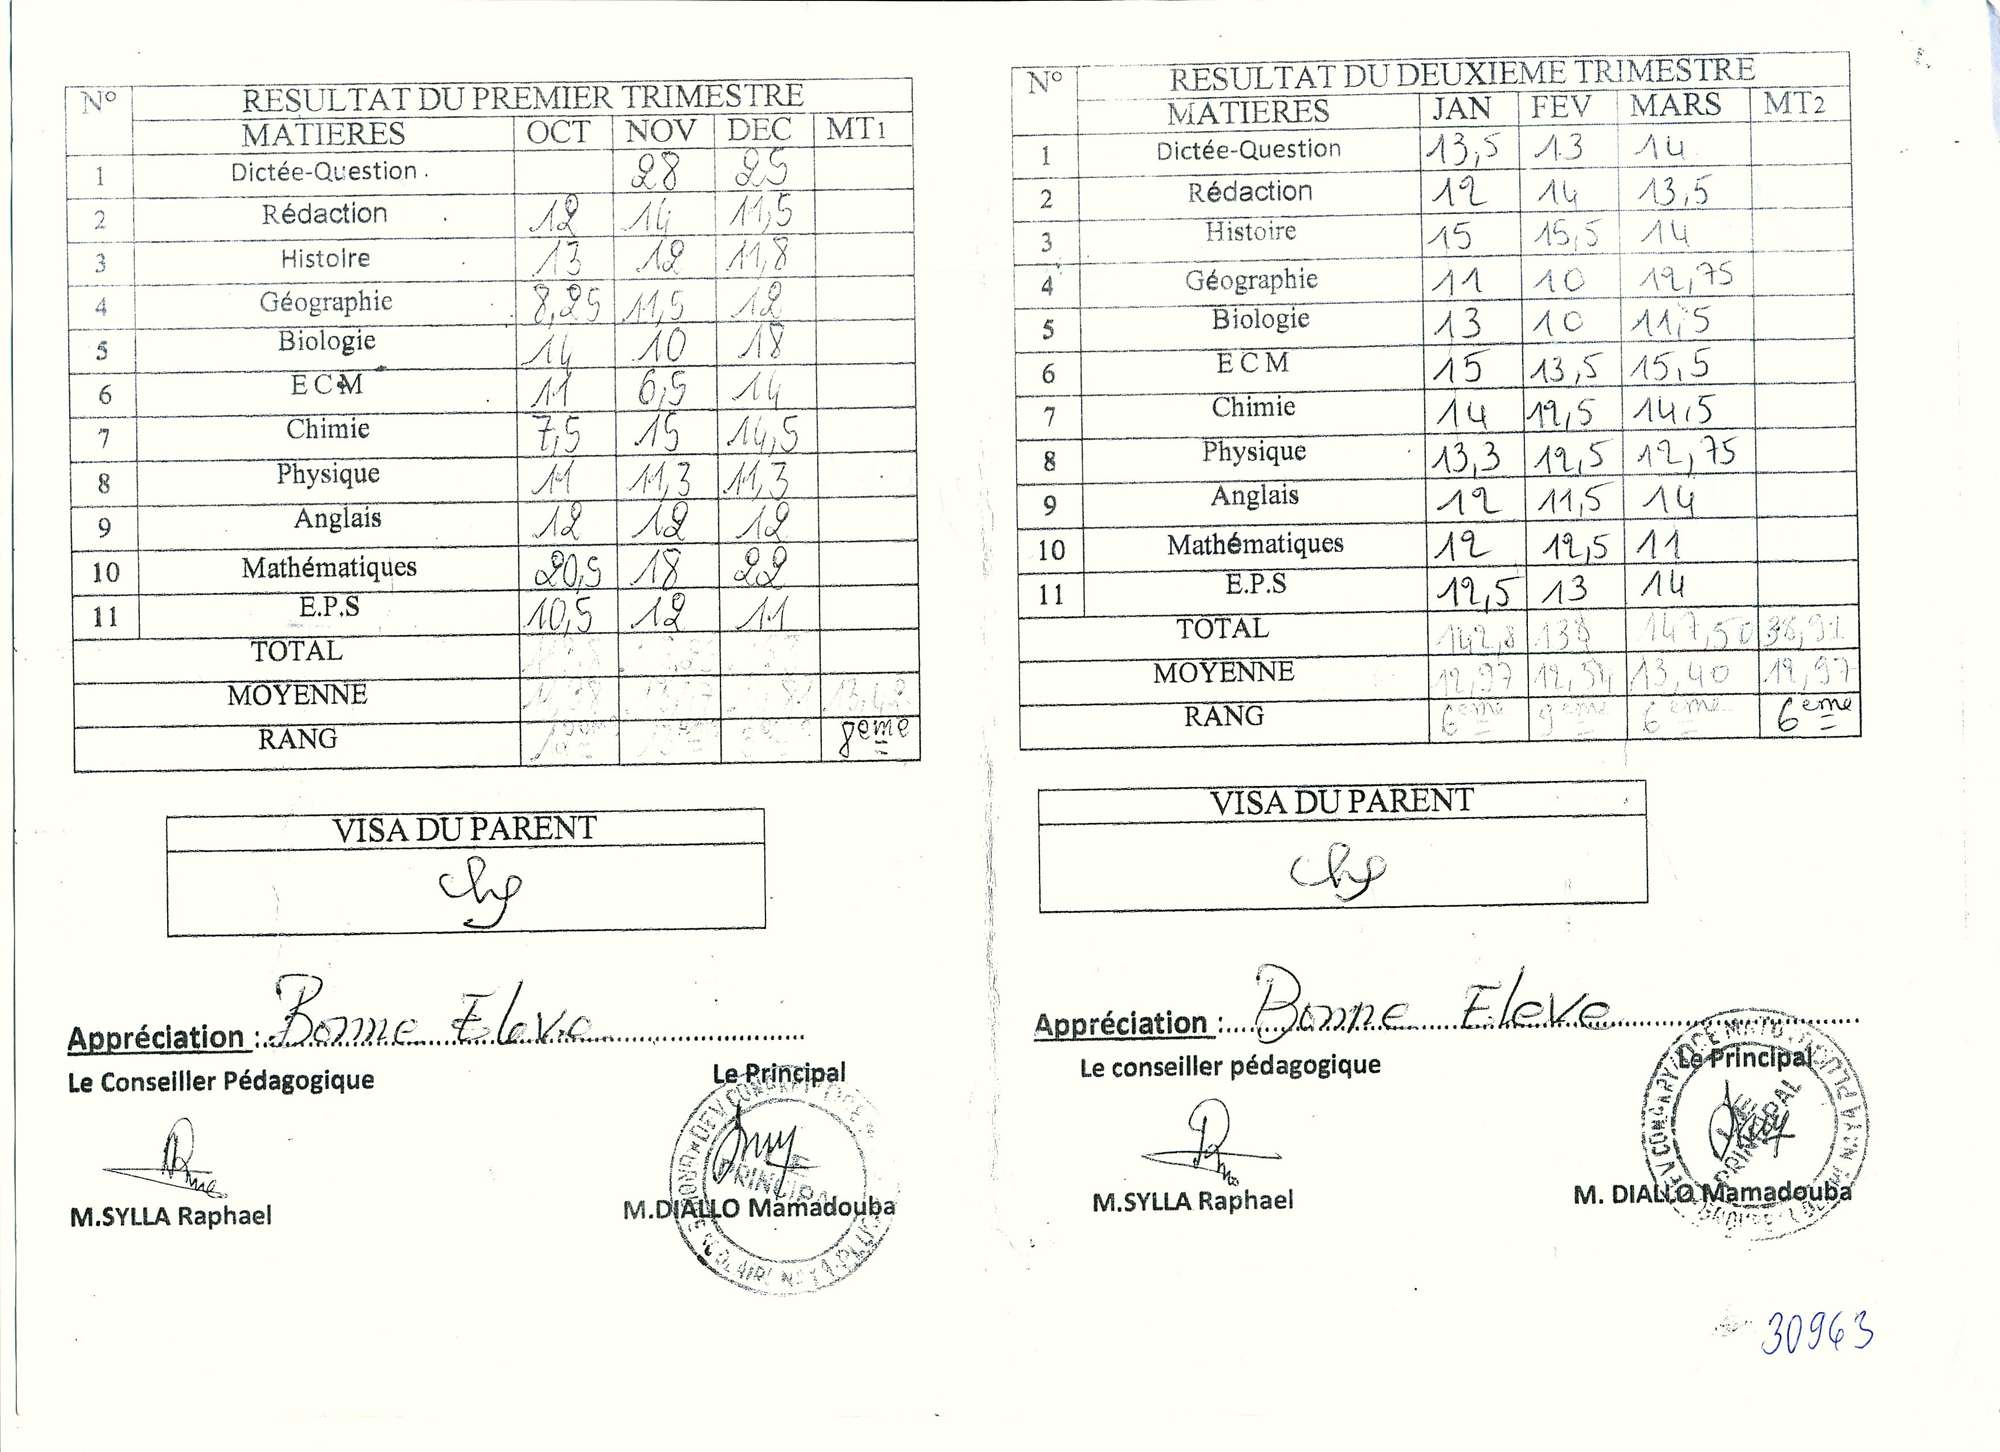 N° RESULTAT DU PREMIER TRIMESTRE
MATIERES OCT NOV DEC MT1
1 Dictée-Question 28 25
2 Rédaction 12 14 11,5
3 Histoire 13 12 11,8
4 Géographie 8,25 11,5 12
5 Biologie 14 10 18
6 E C M 11 6,5 14
7 Chimie 7,5 15 14,5
8 Physique 11 11,3 11,3
9 Anglais 12 12 12
10 Mathématiques 20,5 18 22
11 E.P.S 10,5 12 11
TOTAL
MOYENNE 13,42
RANG 8eme
VISA DU PARENT
Appréciation : Bonne Eleve
Le Conseiller Pédagogique Le Principal
M.SYLLA Raphael M.DIALLO Mamadouba
LE PRINCIPAL
N° RESULTAT DU DEUXIEME TRIMESTRE
MATIERES JAN FEV MARS MT2
1 Dictée-Question 13,5 13 14
2 Rédaction 12 14 13,5
3 Histoire 15 15,5 14
4 Géographie 11 10 12,75
5 Biologie 13 10 11,5
6 E C M 15 13,5 15,5
7 Chimie 14 12,5 14,5
8 Physique 13,3 12,5 12,75
9 Anglais 12 11,5 14
10 Mathématiques 12 12,5 11
11 E.P.S 12,5 13 14
TOTAL 142,8 138 147,50 38,91
MOYENNE 12,97 12,54 13,40 12,97
RANG 6eme 9eme 6eme 6eme
VISA DU PARENT
Appréciation : Bonne Eleve
Le conseiller pédagogique Le Principal
M.SYLLA Raphael M. DIALLO Mamadouba
LE PRINCIPAL
30963